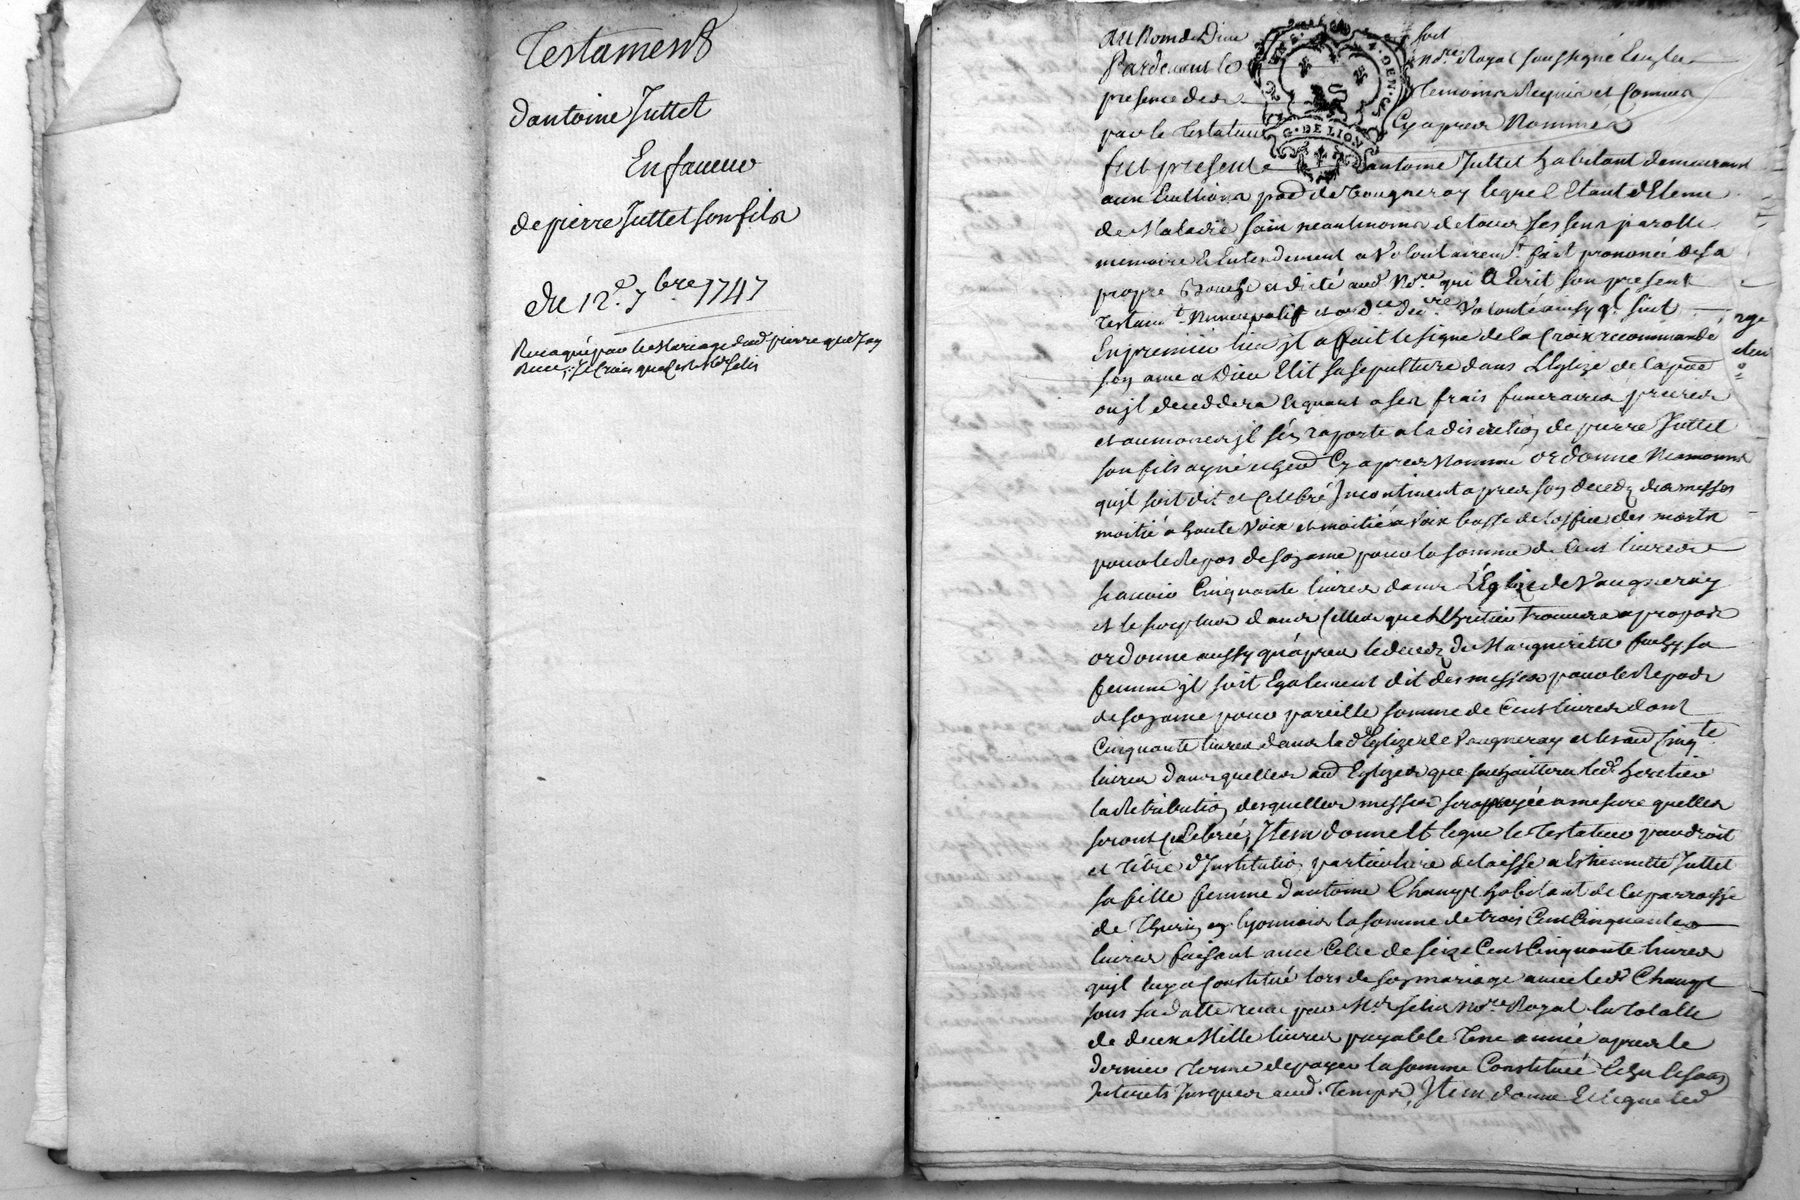 Testament
dantoine Juttet
En faveur
de pierre Juttet son fils
du 12e. 7bre. 1747
Revoqué par le Mariage dud pierre que Jay
Receu
au Nom de Dieu soit
Pardevant le nore. Royal soussigné En la
presence des Temoins Requis et Connus
par le Testateur Cy apres Nommés
fut present antoine Juttet habitant demeurant
aux paed de Vaugneray lequel Etant detenu
de Maladie sain neantmoins de tous ses sens parolle
memoire & Entendement a Volontairemt. fait prononcé de sa
propre Bouche et dicté aud Nore. qui a Ecrit son present
Testamt. Nuncupatif et ordce. de dre. Volonté ainsy q. suit
En premier lieu jl a fait le signe de la Croix recommandé
son ame a Dieu Elit sa sepulture dans LEglize de la paed
ou jl deceddera Et quant a ses frais funeraires prieres
et aumones jl sen raporte a la discretion de pierre Juttet
son fils ayné et herd Cy apres Nommé ordonne Neamoins
quil soit dit et Celebré Jncontinent apres son deced des messes
moitié a haute Voix et moitié a Voix basse de loffice des morts
pour le Repos de son ame pour la somme de Cent livres
scavoir Cinquante livres dans LEglize de Vaugneray
et le surplus dans Celles que lheritier trouvera a propos
ordonne aussy quapres le deced de Margueritte sa
femme jl soit Egalement dit des messes pour le Repos
de son ame pour pareille somme de Cent livres dont
Cinquante livres dans lad Eglize de Vaugneray et les aud Cinqte.
livres dans quelles aud Eglizes que souhaittera led heritier
la Retribution desquelles messes sera payée a mesure quelles
seront Celebrées, Jtem donne Et legue le Testateur par droit
et titre dJnstitution particuliere delaisse a Estiennette Juttet
sa fille femme dantoine habitant de la parroisse
de Thurin en lyonnois la somme de trois Cent Cinquante
livres faisant avec Celle de seize Cent Cinquante livres
quil luy a Constitué lors de son mariage avec led
sous sa datte receu par Me. nore. Royal la totalle
de deux Mille livres payable Une année apres le
dernier terme de payer la somme Constituée
Jnterets Jusques aud. Temps, Jtem donne Et legue led